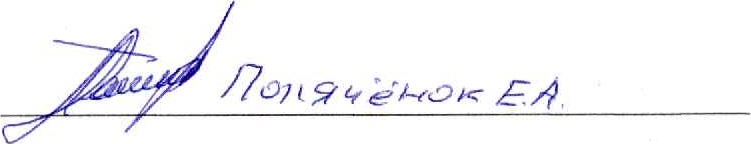 Полячёнок Е.А.